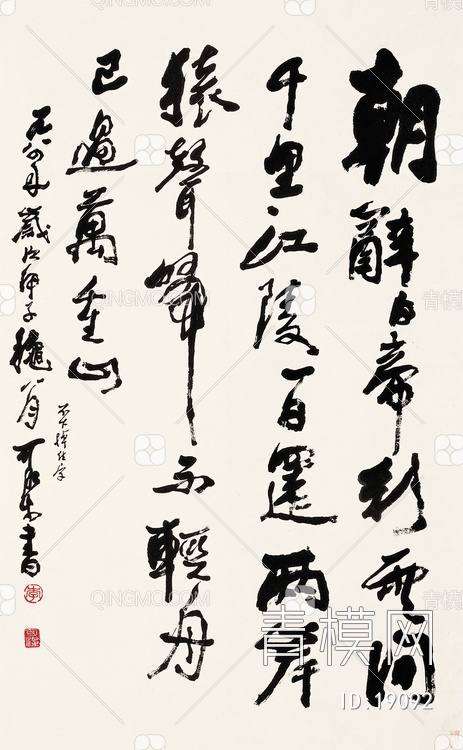 朝辭白帝彩雲間
千里江陵一日還兩岸
猿聲啼不輕舟
已過萬重山
不下掉住字
一九八四年歲次甲子穐八月可染書
青模网
ID:19092
QINGMO.COM